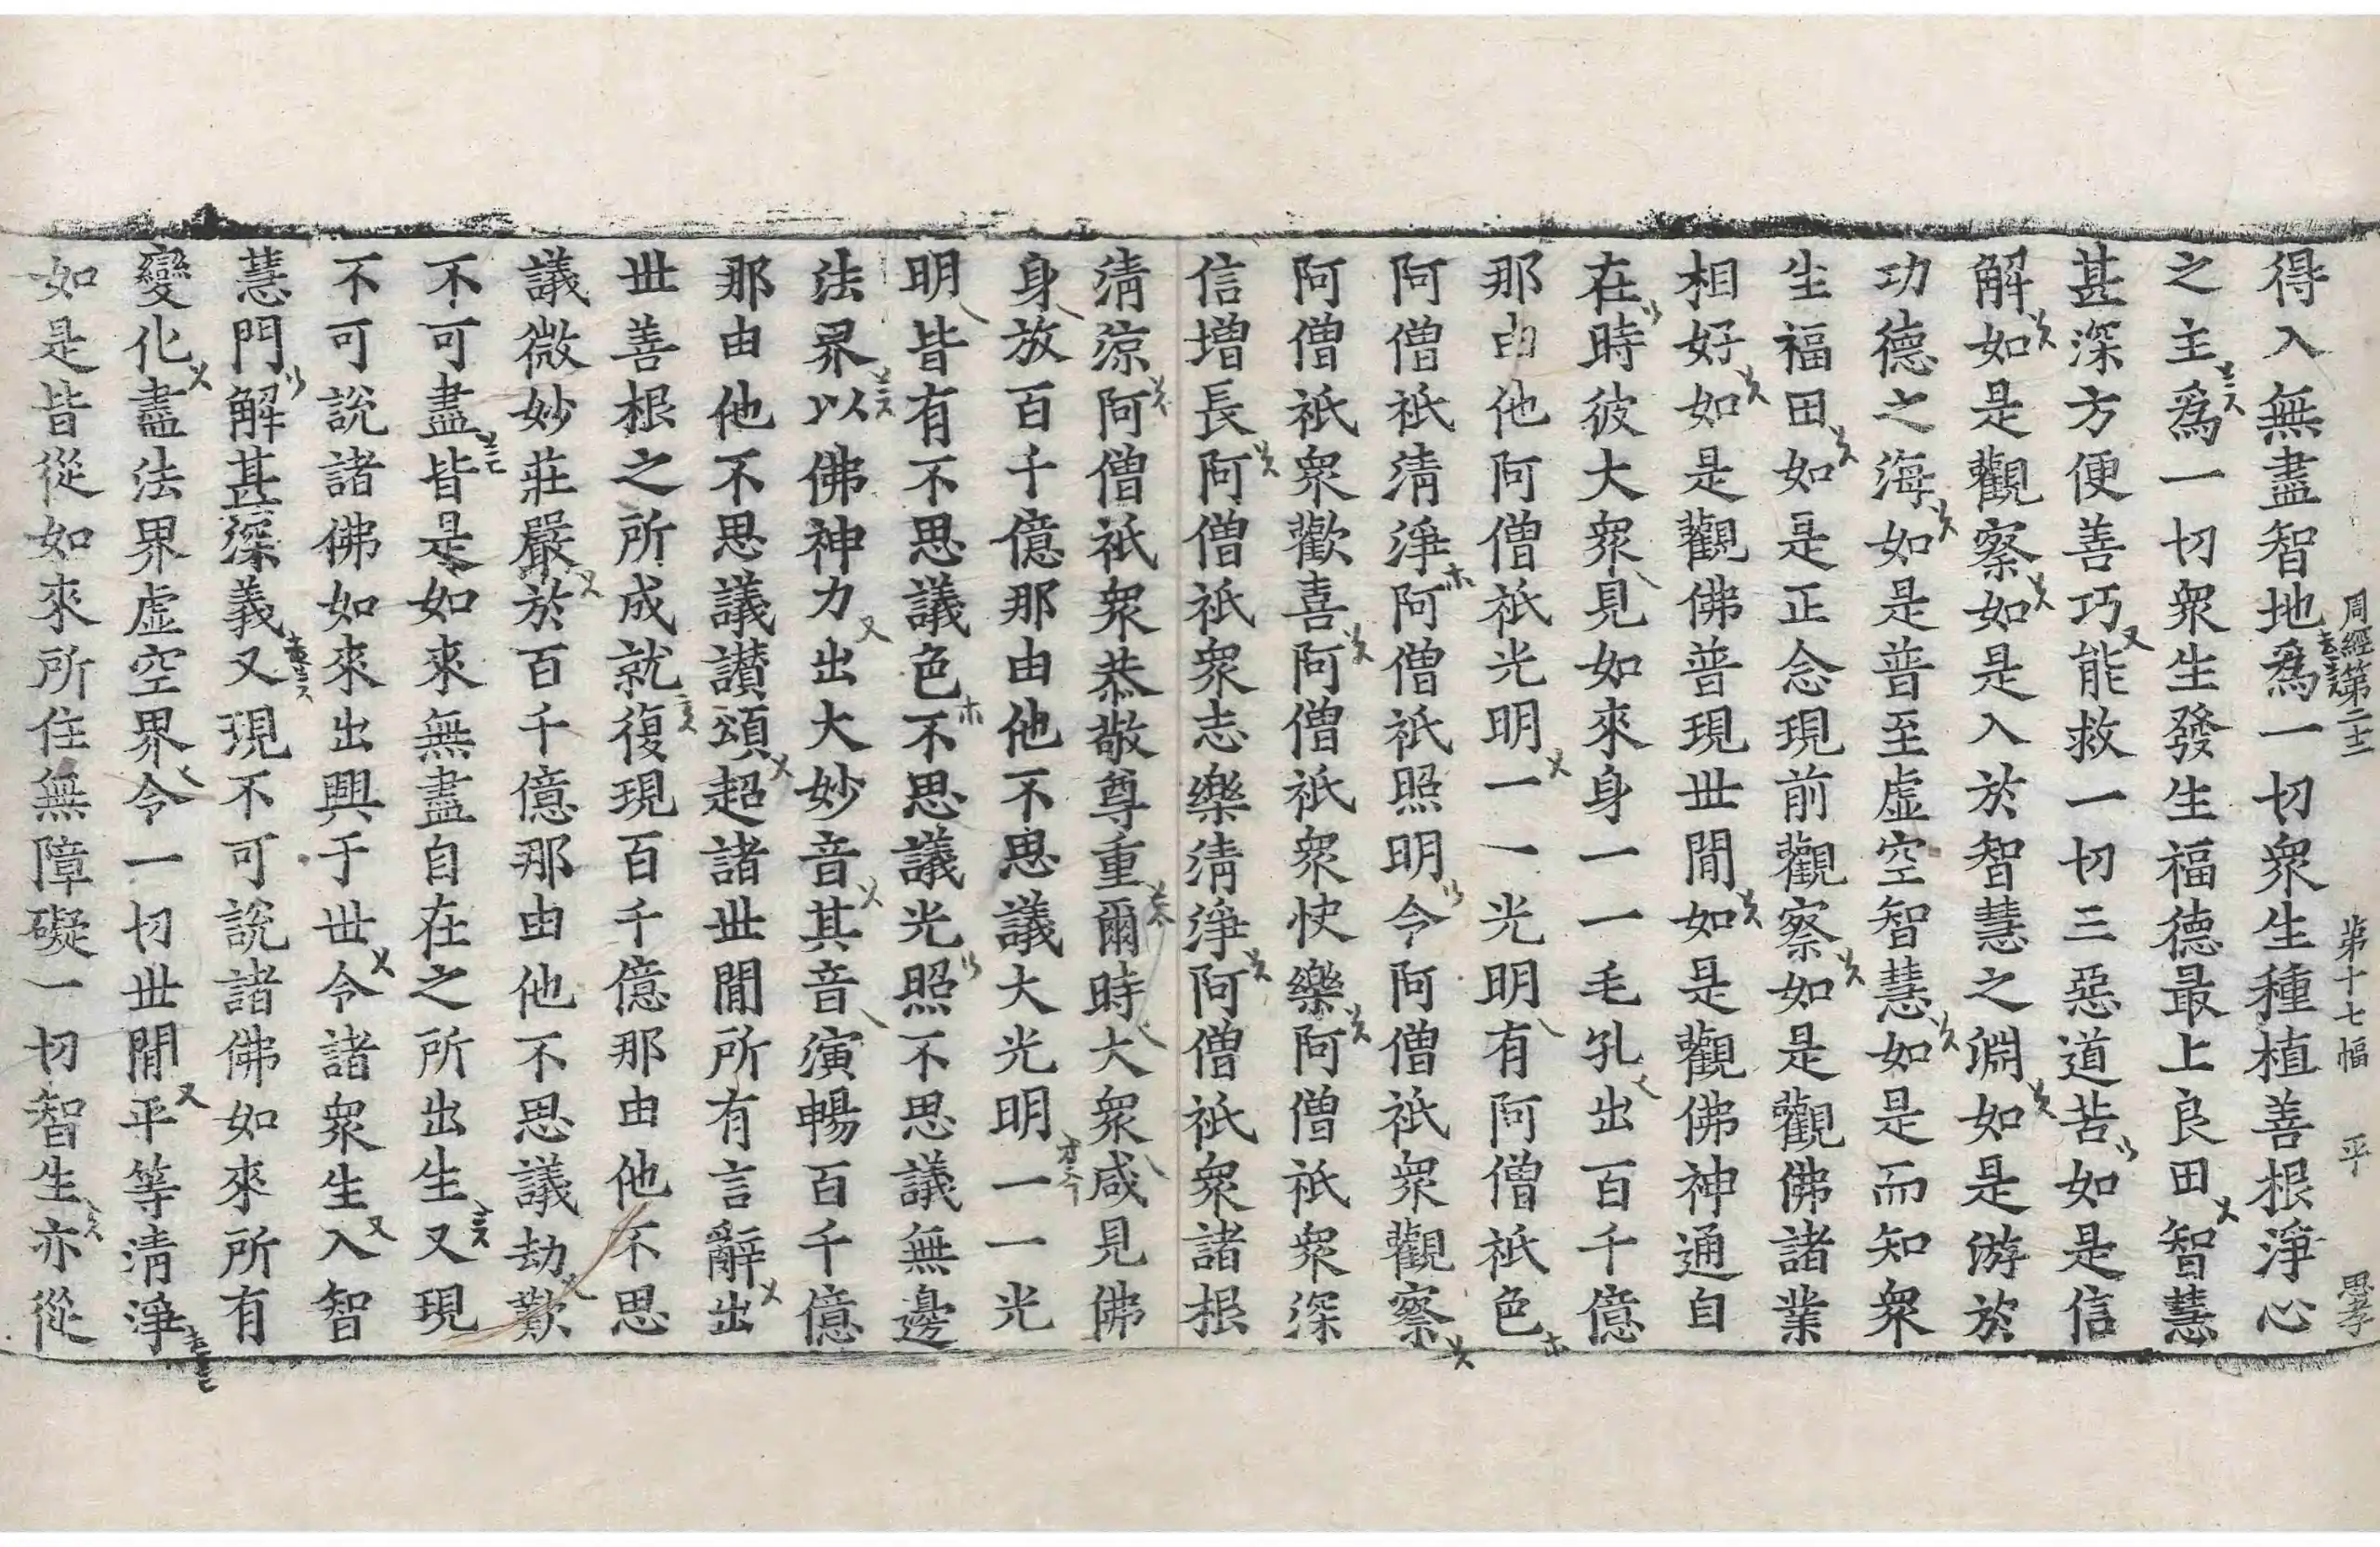 周經第二十二　第十七幅　平　思孝
得入無盡智地爲一切衆生種植善根淨心
之主爲一切衆生發生福德最上良田智慧
甚深方便善巧能救一切三惡道苦如是信
解如是觀察如是入於智慧之淵如是游於
功德之海如是普至虛空智慧如是而知衆
生福田如是正念現前觀察如是觀佛諸業
相好如是觀佛普現世間如是觀佛神通自
在時彼大衆見如來身一一毛孔出百千億
那由他阿僧祇光明一一光明有阿僧祇色
阿僧祇淸淨阿僧祇照明令阿僧祇衆觀察
阿僧祇衆歡喜阿僧祇衆快樂阿僧祇衆深
信增長阿僧祇衆志樂淸淨阿僧祇衆諸根
淸涼阿僧祇衆恭敬尊重爾時大衆咸見佛
身放百千億那由他不思議大光明一一光
明皆有不思議色不思議光照不思議無邊
法界以佛神力出大妙音其音演暢百千億
那由他不思議讃頌超諸世間所有言辭出
世善根之所成就復現百千億那由他不思
議微妙莊嚴於百千億那由他不思議劫歎
不可盡皆是如來無盡自在之所出生又現
不可說諸佛如來出興于世令諸衆生入智
慧門解甚深義又現不可說諸佛如來所有
變化盡法界虛空界令一切世間平等淸淨
如是皆從如來所住無障礙一切智生亦從